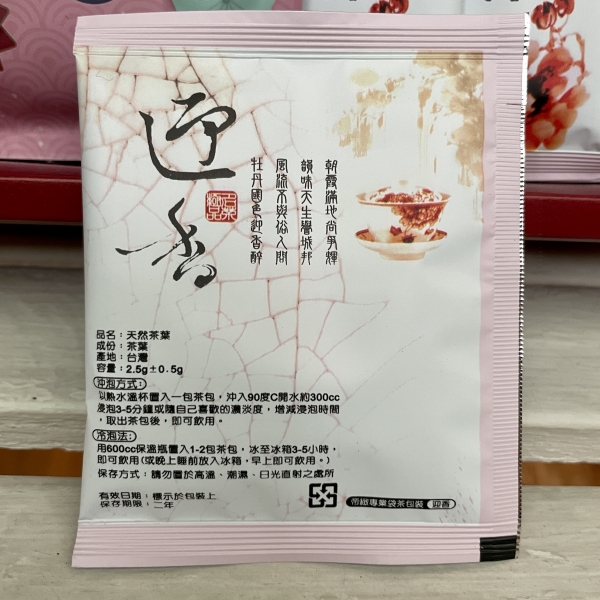 迎香
朝霞滿地尚爭輝
韻味天生譽城邦
風流不與俗人問
牡丹國色迎香醉
品名：天然茶葉
成份：茶葉
產地：台灣
容量：2.5g±0.5g
沖泡方式：
以熱水溫杯置入一包茶包，沖入90度C開水約300cc
浸泡3-5分鐘或隨自己喜歡的濃淡度，增減浸泡時間
，取出茶包後，即可飲用。
冷泡法：
用600cc保溫瓶置入1-2包茶包，冰至冰箱3-5小時，
即可飲用(或晚上睡前放入冰箱，早上即可飲用。)
保存方式：請勿置於高溫、潮濕、日光直射之處所
有效日期：標示於包裝上
保存期限：二年
帝緻專業袋茶包裝 迎香